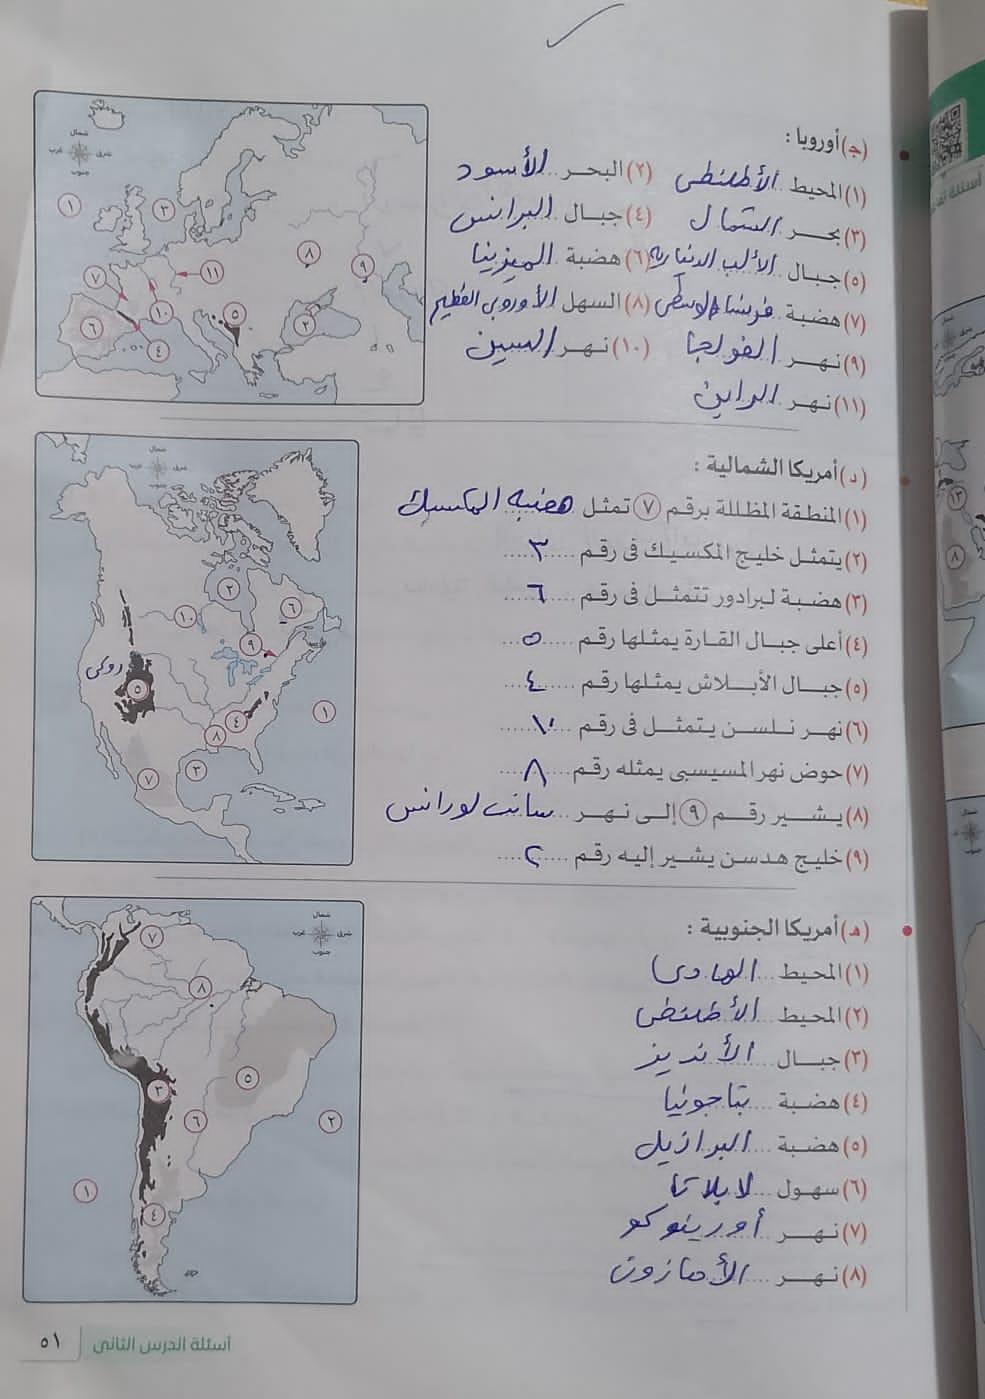 (ج) أوروبا :
(١) المحيط الأطلنطى (٢) البحر الأسود
(٣) بحر الشمال (٤) جبال البرانس
(٥) جبال الألب الدينارية (٦) هضبة الميزيتا
(٧) هضبة فرنسا الوسطى (٨) السهل الأوروبى العظيم
(٩) نهر الفولجا (١٠) نهر السين
(١١) نهر الراين
شمال
شرق
غرب
جنوب
١
٣
٨
٩
٧
١١
١٠
٥
٦
٢
٤
(د) أمريكا الشمالية :
(١) المنطقة المظللة برقم ٧ تمثل هضبة المكسيك
(٢) يتمثل خليج المكسيك فى رقم ٣
(٣) هضبة لبرادور تتمثل فى رقم ٦
(٤) أعلى جبال القارة يمثلها رقم ٥
(٥) جبال الأبلاش يمثلها رقم ٤
(٦) نهر نلسن يتمثل فى رقم ١٠
(٧) حوض نهر المسيسبى يمثله رقم ٨
(٨) يشير رقم ٩ إلى نهر سانت لورانس
(٩) خليج هدسن يشير إليه رقم ٢
شمال
شرق
غرب
جنوب
٢
٦
١٠
٩
روكى
٥
١
٤
٨
٣
٧
(هـ) أمريكا الجنوبية :
(١) المحيط الهادى
(٢) المحيط الأطلنطى
(٣) جبال الأنديز
(٤) هضبة بتاجونيا
(٥) هضبة البرازيل
(٦) سهول لابلاتا
(٧) نهر أورينوكو
(٨) نهر الأمازون
شمال
شرق
غرب
جنوب
٧
٨
٥
٣
٦
٢
١
٤
أسئلة الدرس الثانى
٥١